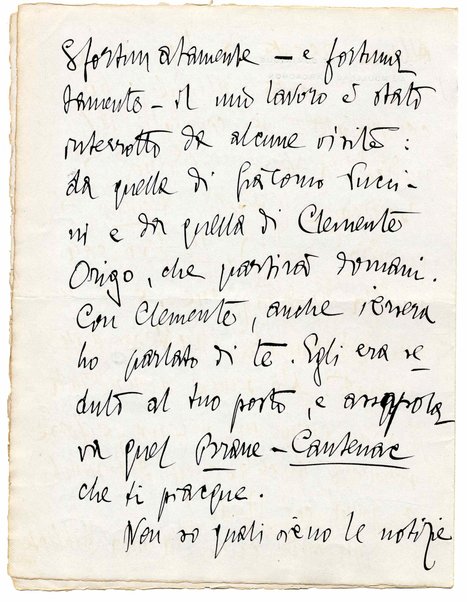 Sfortunatamente – e fortuna
tamente – il mio lavoro è stato
interrotto da alcune visite:
da quella di Giacomo Pucci-
ni e da quella di Clemente
Origo, che partirà domani.
Con Clemente, anche iersera
ho parlato di te. Egli era se-
duto al tuo posto, e assapora
va quel Brane-Cantenac
che ti piacque.
Non so quali sieno le notizie